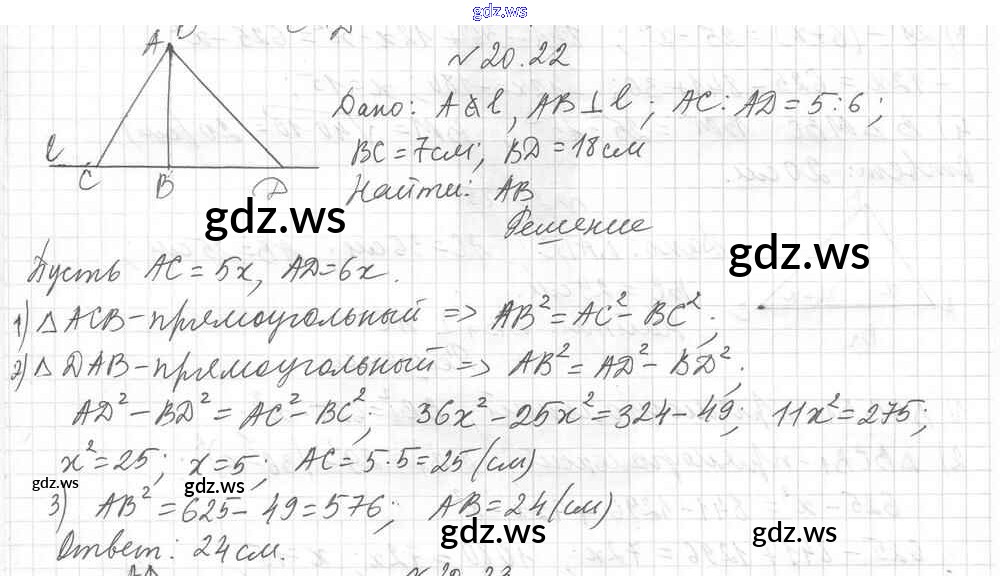 gdz.ws
A
№ 20.22
Дано: A ∉ l, AB ⊥ l; AC : AD = 5 : 6;
l
BC = 7см; BD = 18см
C B D
Найти: AB
gdz.ws
Решение
gdz.ws
Пусть AC = 5x, AD = 6x.
1) △ ACB - прямоугольный => AB² = AC² - BC²;
2) △ DAB - прямоугольный => AB² = AD² - BD²;
AD² - BD² = AC² - BC²; 36x² - 25x² = 324 - 49; 11x² = 275;
x² = 25; x = 5; AC = 5·5 = 25 (см)
gdz.ws gdz.ws
3) AB² = 625 - 49 = 576; AB = 24 (см)
gdz.ws gdz.ws
Ответ: 24 см.
№ 20.23